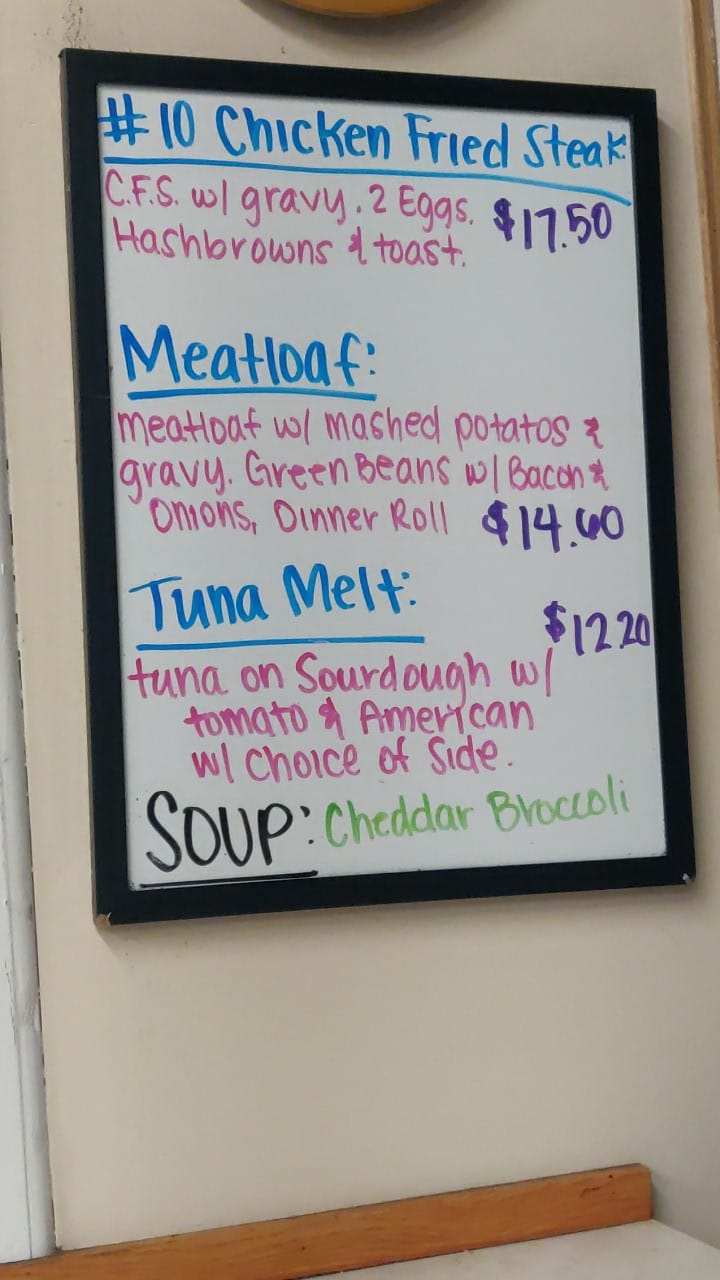 #10 Chicken Fried Steak
C.F.S. w/ gravy. 2 Eggs.
Hashbrowns & toast.
$17.50
Meatloaf:
meatloaf w/ mashed potatos &
gravy. Green Beans w/ Bacon &
Onions, Dinner Roll $14.60
Tuna Melt:
$12.20
tuna on Sourdough w/
tomato & American
w/ Choice of Side.
SOUP: Cheddar Broccoli